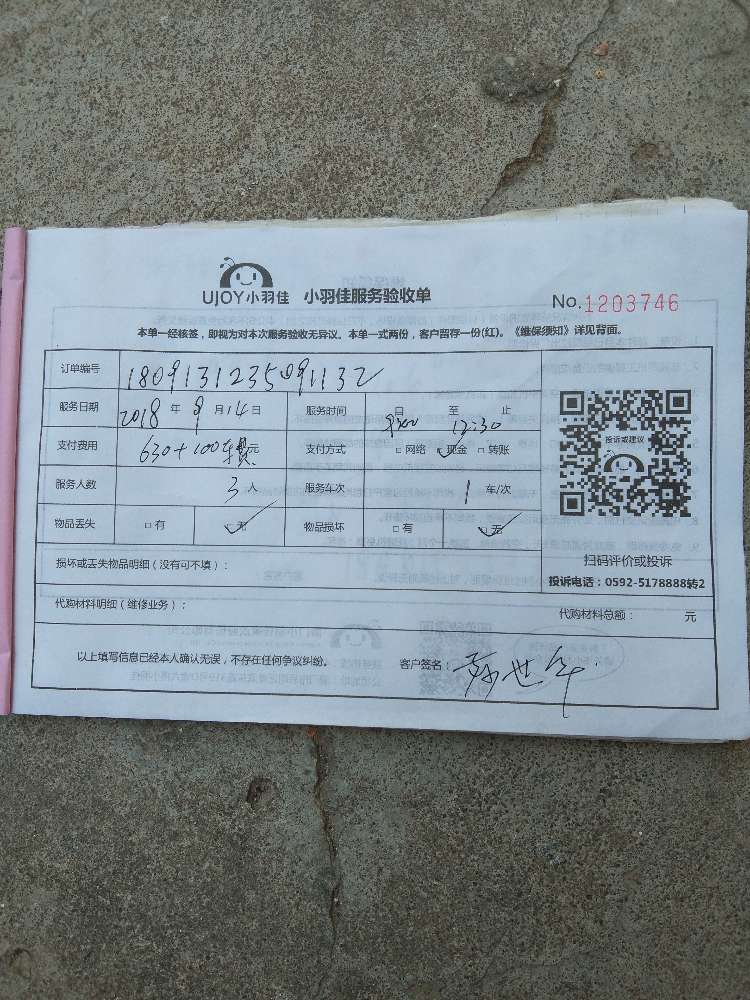 UJOY小羽佳 小羽佳服务验收单 No.1203746
本单一经核签，即视为对本次服务验收无异议。本单一式两份，客户留存一份(红)。《维保须知》详见背面。
订单编号 1809131235091132
服务日期 2018年9月14日 服务时间 日 至 12:30 止
支付费用 630+100 元 支付方式 □网络 ✓现金 □转账
服务人数 3人 服务车次 1车/次
物品丢失 □有 ✓无 物品损坏 □有 ✓无
投诉或建议
扫码评价或投诉
投诉电话：0592-5178888转2
损坏或丢失物品明细（没有可不填）：
代购材料明细（维修业务）： 代购材料总额： 元
以上填写信息已经本人确认无误，不存在任何争议纠纷。 客户签名：